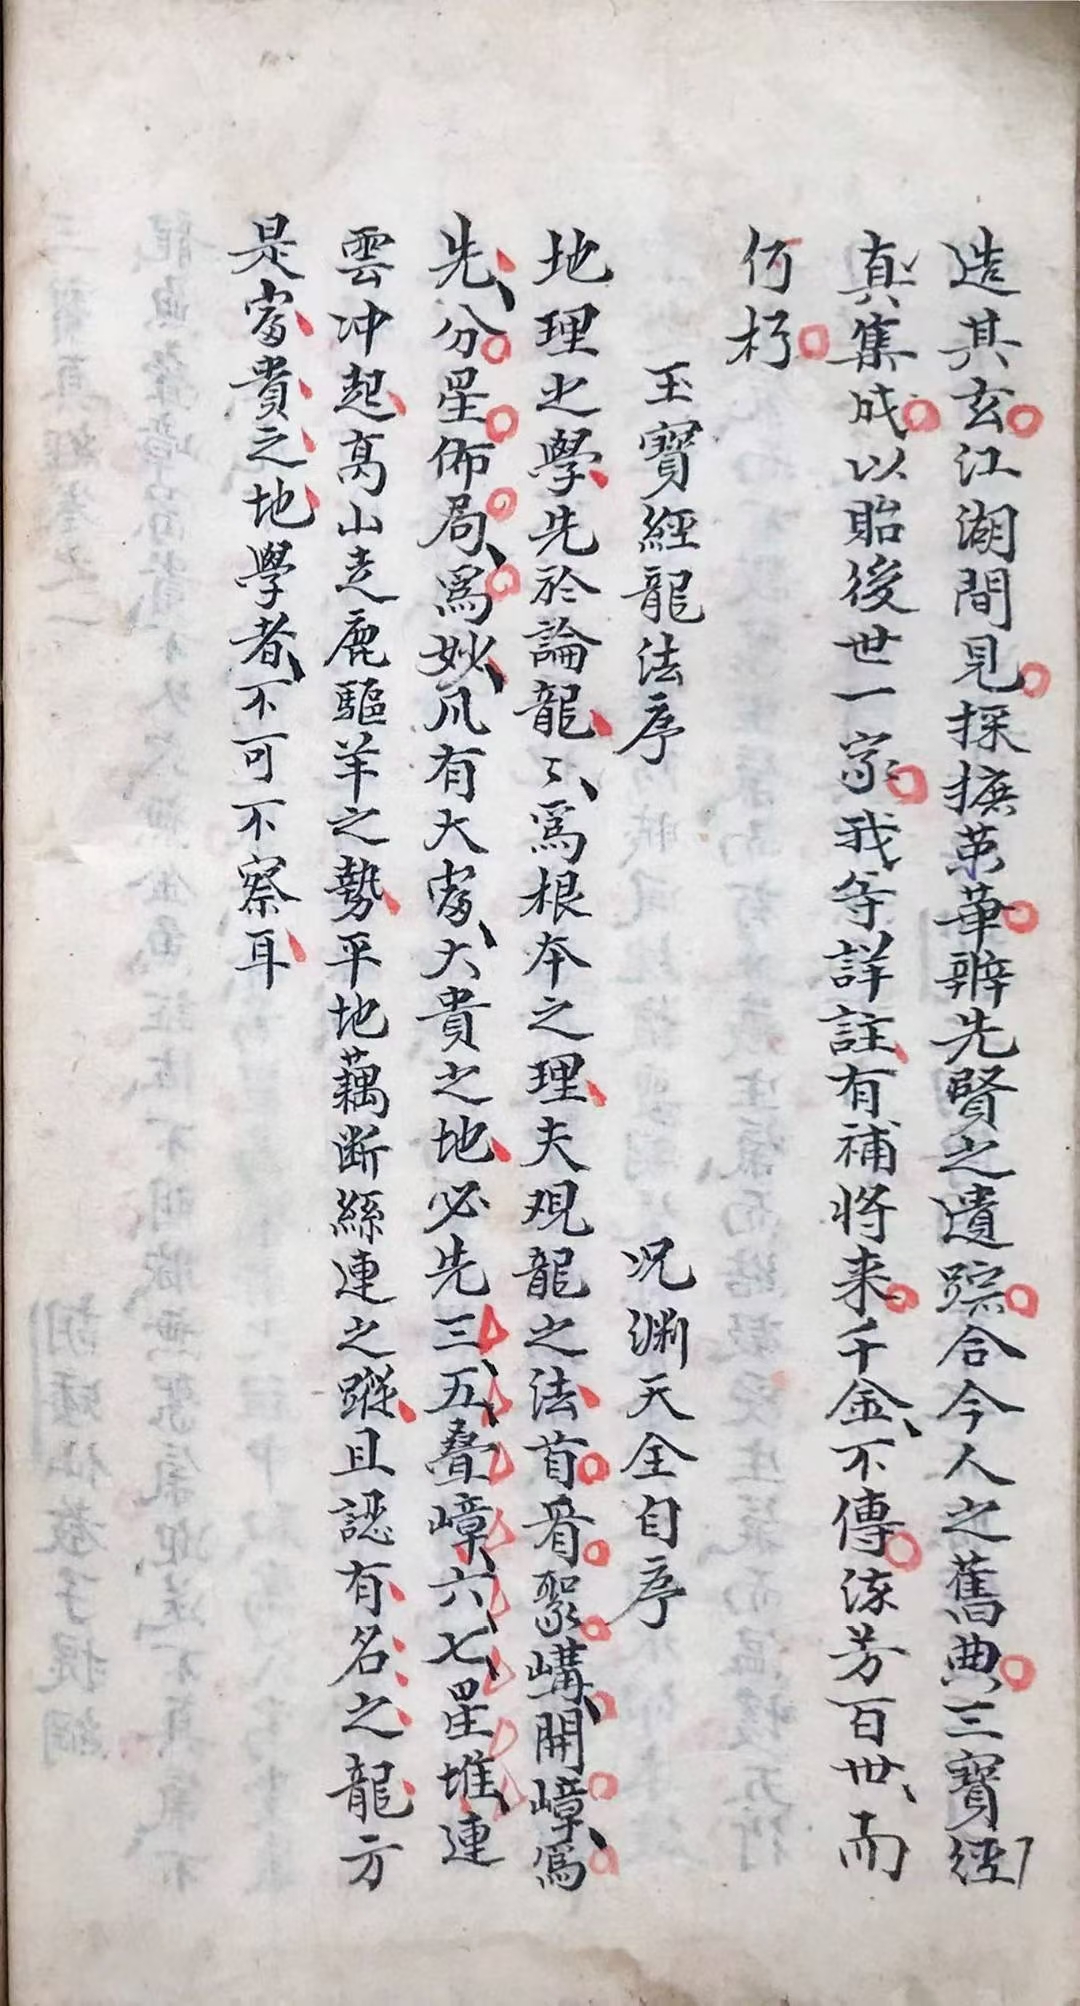 造其玄江湖間見採摭英華辨先賢之遺踪合今人之舊典三寶經
真集成以貽後世一家我等詳註有補將来千金不傳流芳百世而
何朽
玉寶經龍法序 况淵天全自序
地理之學先於論龍々為根本之理夫观龍之法首看聚講開嶂為
先分星佈局為妙凡有大富大貴之地必先三五叠嶂六七星堆連
雲冲起高山走鹿驅羊之勢平地藕断絲連之蹤且認有名之龍方
是富貴之地學者不可不察耳